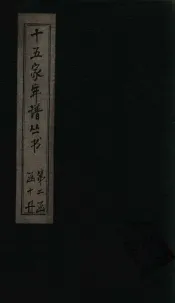 十五家年谱丛书
第二函
函十册